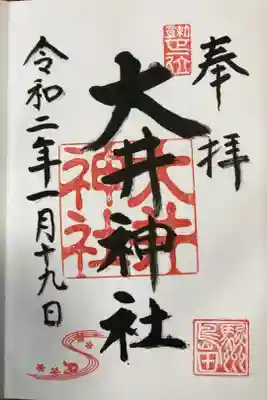 奉拝
大井神社
大井神社
令和二年一月十九日
島田